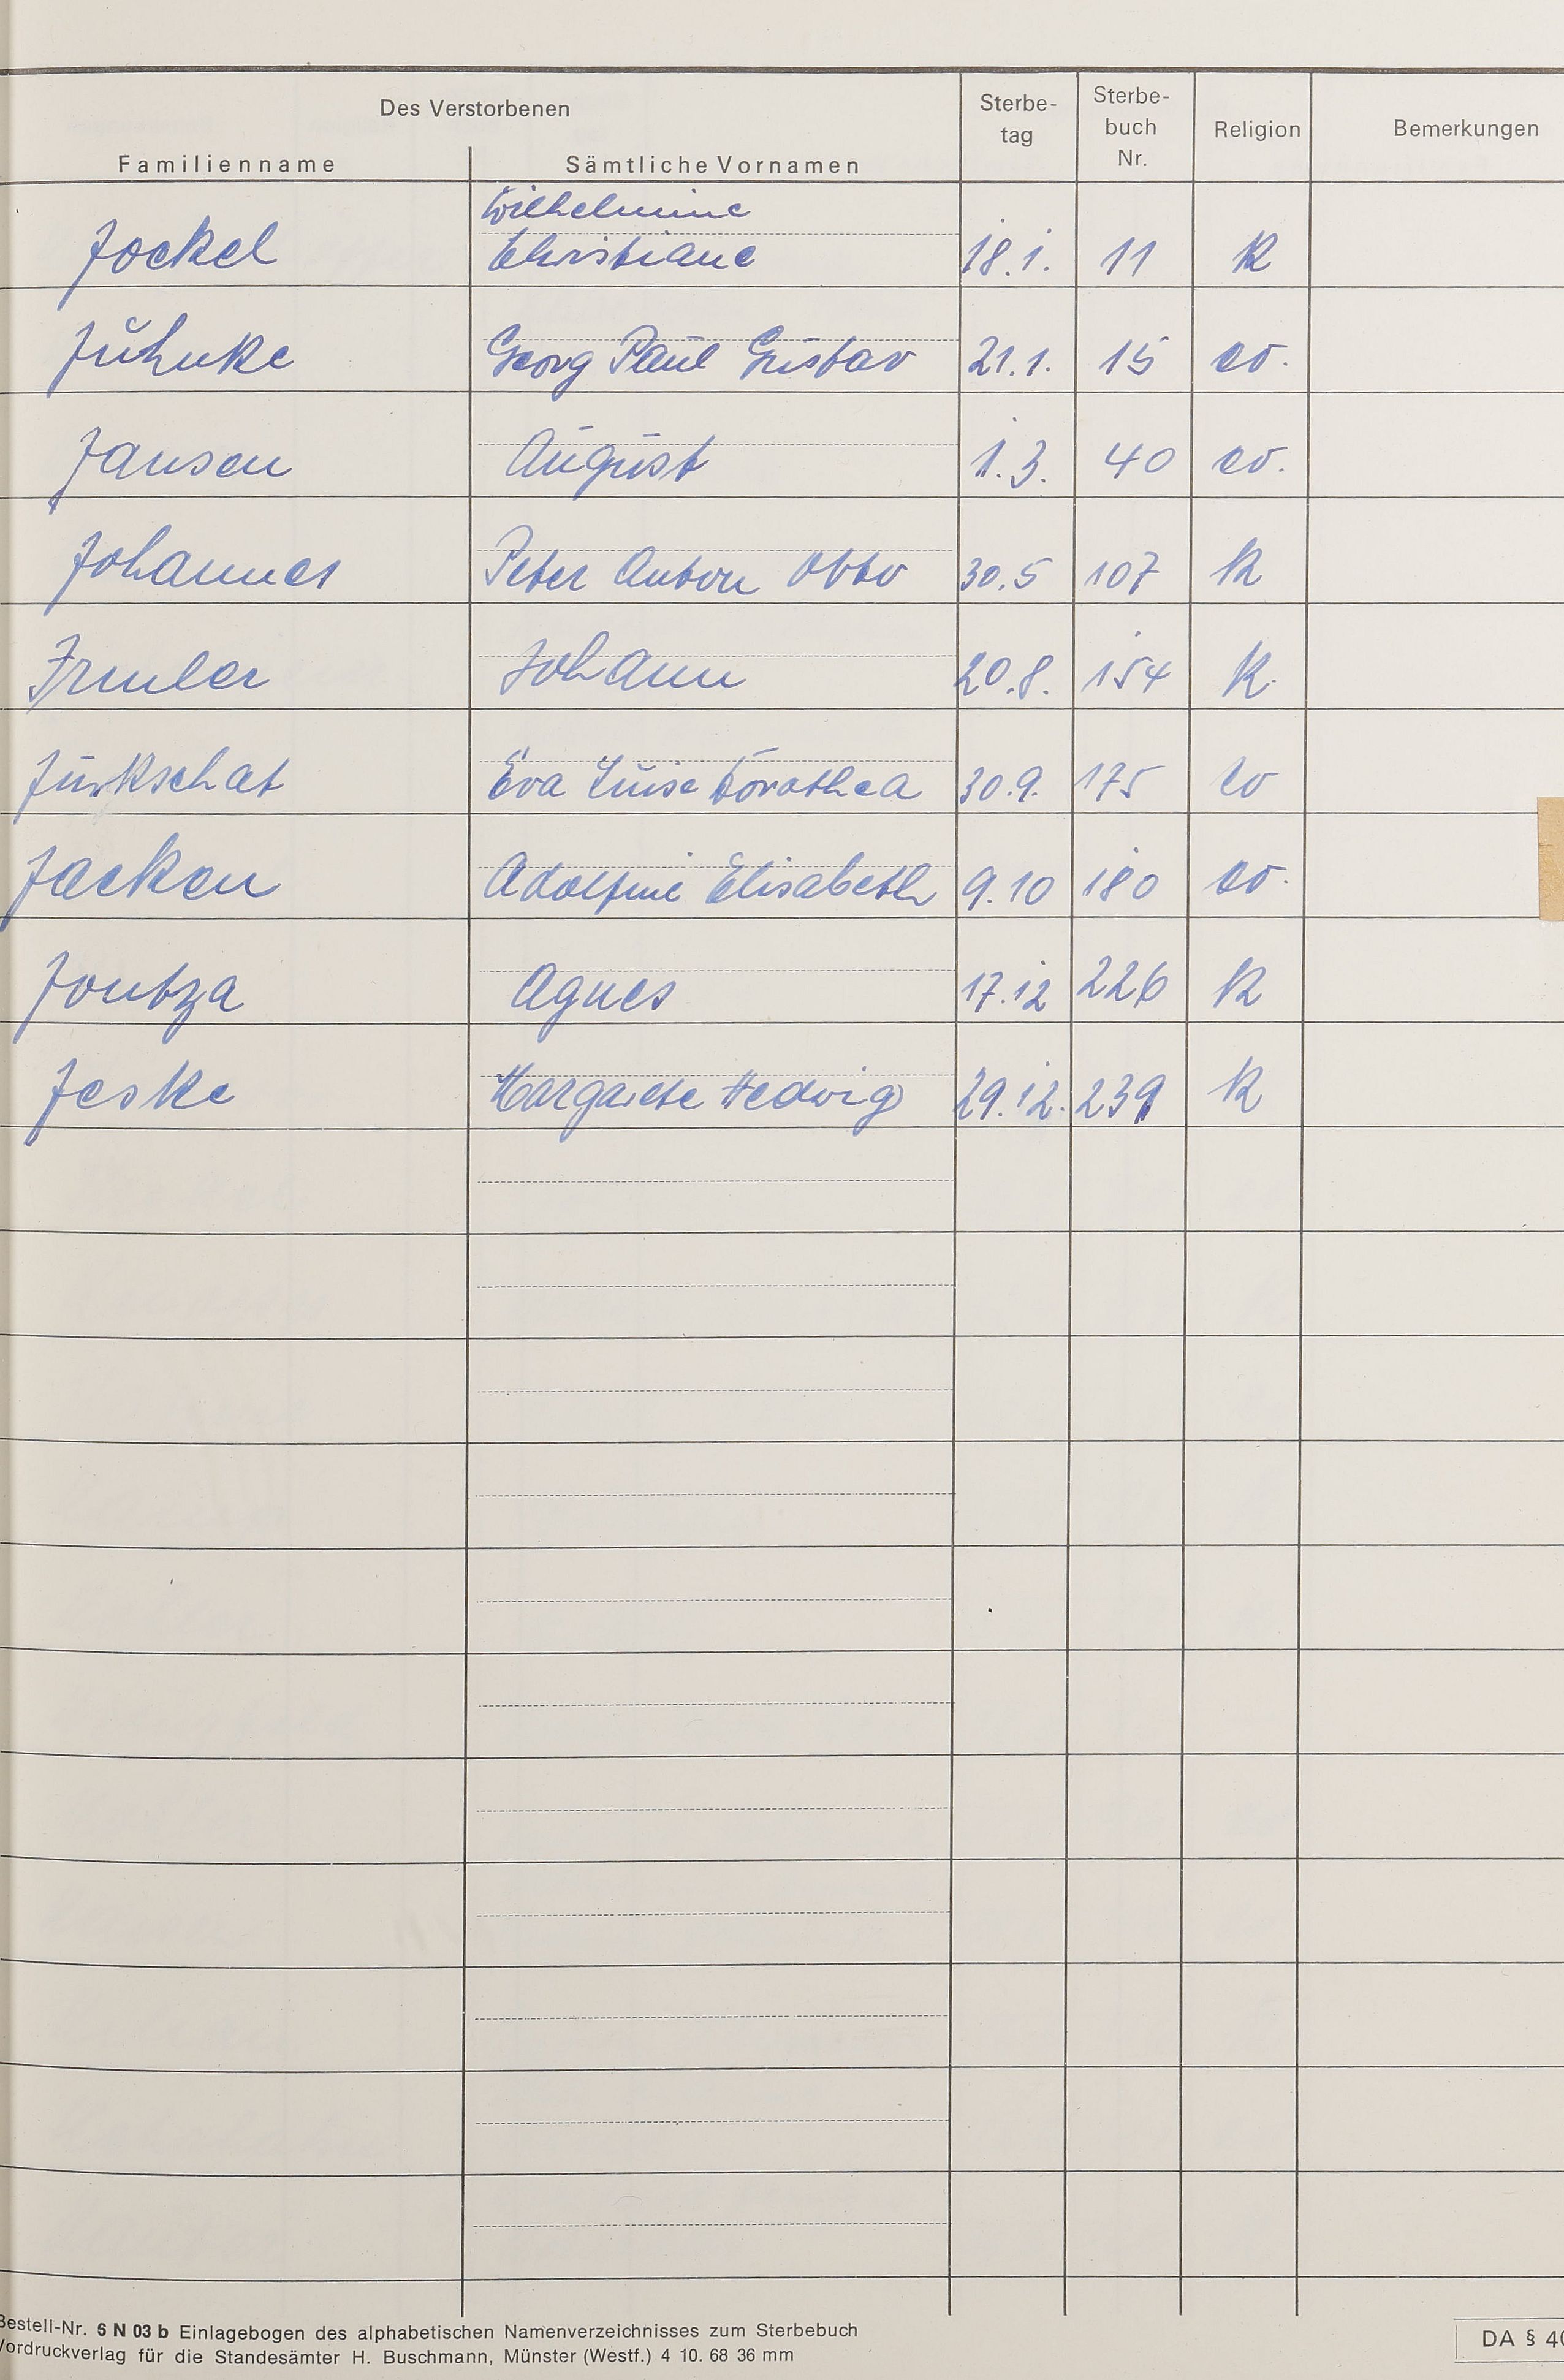 Des Verstorbenen
Familienname Sämtliche Vornamen Sterbe-tag Sterbe-buch Nr. Religion Bemerkungen
Wilhelmine
Jockel Christiane 18.1. 11 k
Juhnke Georg Paul Gustav 21.1. 15 ev.
Jansen August 1.3. 40 ev.
Johannes Peter Anton Otto 30.5 107 k
Irmler Johann 20.8. 154 k.
Jurkschat Eva Luise Dorothea 30.9. 175 ev
Jacken Adolfine Elisabeth 9.10 180 ev.
Jontza Agnes 17.12 226 k
Jeske Margarete Hedwig 29.12. 239 k
Bestell-Nr. 6 N 03 b Einlagebogen des alphabetischen Namenverzeichnisses zum Sterbebuch
Vordruckverlag für die Standesämter H. Buschmann, Münster (Westf.) 4 10. 68 36 mm
DA § 40